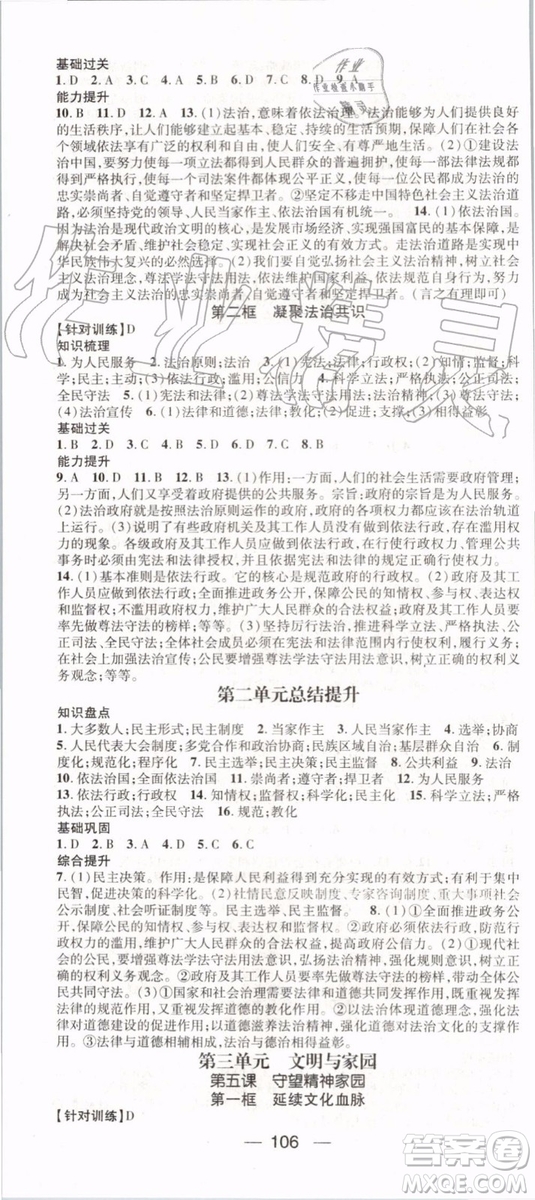 基础过关
1. D 2. A 3. C 4. A 5. C 6. A 7. D 8. D 9. A
能力提升
10. B 11. D 12. A 13. (1)法治,意味着依法治理。法治能够为人们提供良好
的生活秩序,让人们能够建立起基本、稳定、持续的生活预期,保障人们在社会各
个领域依法享有广泛的权利和自由,使人们安全、有尊严地生活。(2)①建设法
治中国,要努力使每一项立法都得到人民群众的普遍拥护,使每一部法律法规都
得到严格执行,使每一个司法案件都体现公平正义,使每一位公民都成为法治的
忠实崇尚者、自觉遵守者和坚定捍卫者。②必须走中国特色社会主义法治道
路,必须坚持党的领导、人民当家作主、依法治国有机统一。 14. (1)依法治国。
因为法治是现代政治文明的核心,是发展市场经济、实现强国富民的基本保障,是
解决社会矛盾、维护社会稳定、实现社会正义的有效方式。走法治道路是实现中
华民族伟大复兴的必然选择。(2)我们要自觉尊法学法守法用法,成为社会主
义法治的忠实崇尚者、自觉遵守者和坚定捍卫者。(言之有理即可)
第二框 凝聚法治共识
【针对训练】D
知识梳理
1. 为人民服务 2. 法治原则;法治 3. 依法行政;行政权 4. (2)知情;参与;表
达;监督 5. (3)依法行政;滥用;公信力 6. 科学立法;严格执法;公正司法;
全民守法 7. (1)宪法和法律;(2)宪法和法律;权利;义务;(3)尊法学法守法;
(4)法治宣传 8. (1)法律和道德;法律;教化;(2)促进;支撑;(3)相得益彰
基础过关
1. B 2. D 3. D 4. B 5. D 6. D 7. C 8. B
能力提升
9. A 10. D 11. B 12. B 13. (1)作用:一方面,人们的社会生活需要政府管理;
另一方面,人们又享受着政府提供的公共服务。宗旨:政府的宗旨是为人民服务。
(2)法治政府就是按照法治原则运作的政府,政府的权力应依法行使在法治轨道
上运行。(3)说明了有些政府机关及其工作人员没有做到依法行政,存在滥用权力
的现象。各级政府及其工作人员应当做到依法行政,在行使行政权力、管理公共
事务时必须由宪法和法律授权,并依据宪法和法律的规定正确行使权力。
14. (1)基本准则是依法行政。它的核心是规范政府的行政权。(2)政府及其工
作人员应推进政务公开,保障公民的知情权、参与权、表达权和监督权;做到依法
行政,防范、不滥用政府权力,维护广大人民群众利益;政府及其工作人员要
率先做尊法守法的榜样;等等。(3)坚持厉行法治,推进科学立法、严格执法、公正
司法、全民守法。全体社会成员必须在宪法和法律范围内行使权利、履行义务;
加强法治宣传;政府及其工作人员应做尊法学法守法用法的模范;全民要增强
全社会法治宣传;公民要增强尊法学法守法用法意识,成长为正确的权利义务观
念;等等。
第二单元总结提升
知识盘点
1. 大多数人;民主形式;民主制度 2. 当家作主 3. 当家作主 4. 选举;协商
5. 人民代表大会制度;多党合作和政治协商;民族区域自治;基层群众自治 6. 民主
制度;规范化;程序化 7. 民主选举;民主决策;民主监督 8. 公共利益 9. 法治
10. 依法治国;全面依法治国 11. 崇尚者;遵守者;捍卫者 12. 为人民服务
13. 依法行政;行政权 14. 知情权;监督权;科学化;民主化 15. 科学立法;严格
执法;公正司法;全民守法 16. 规范;教化
基础巩固
1. D 2. B 3. A 4. D 5. C 6. C
综合提升
7. (1)民主决策。作用:是保障人民利益得到充分实现的有效方式;有利于集中
民智,促进决策的科学化。(2)社情民意反映制度、专家咨询制度、重大事项社会
公示制度、社会听证制度等。 8. (1)①政府及其工作人员应全面推进政务公
开,保障公民的知情权、参与权、表达权和监督权。②政府应依法行政,防范行
政权力的滥用,维护广大人民群众利益,提高政府公信力。(2)①现代社会
的公民应当增强尊法学法守法用法意识,自觉践行法治精神,树立正确的权
利义务观念。②政府及其工作人员要率先做尊法守法的榜样,带动全体公
民共同守法。③国家和社会治理需要法律和道德共同发挥作用,既重视发挥
法律的规范作用,又重视发挥道德的教化作用,以法治体现道德理念、强化
法律对道德建设的促进作用,以道德滋养法治精神、强化道德对法治文化的支撑
作用。③法律与道德相辅相成、法治与德治相得益彰。
第三单元 文明与家园
第五课 守望精神家园
第一框 延续文化血脉
【针对训练】D
106
作业精灵
答案圈